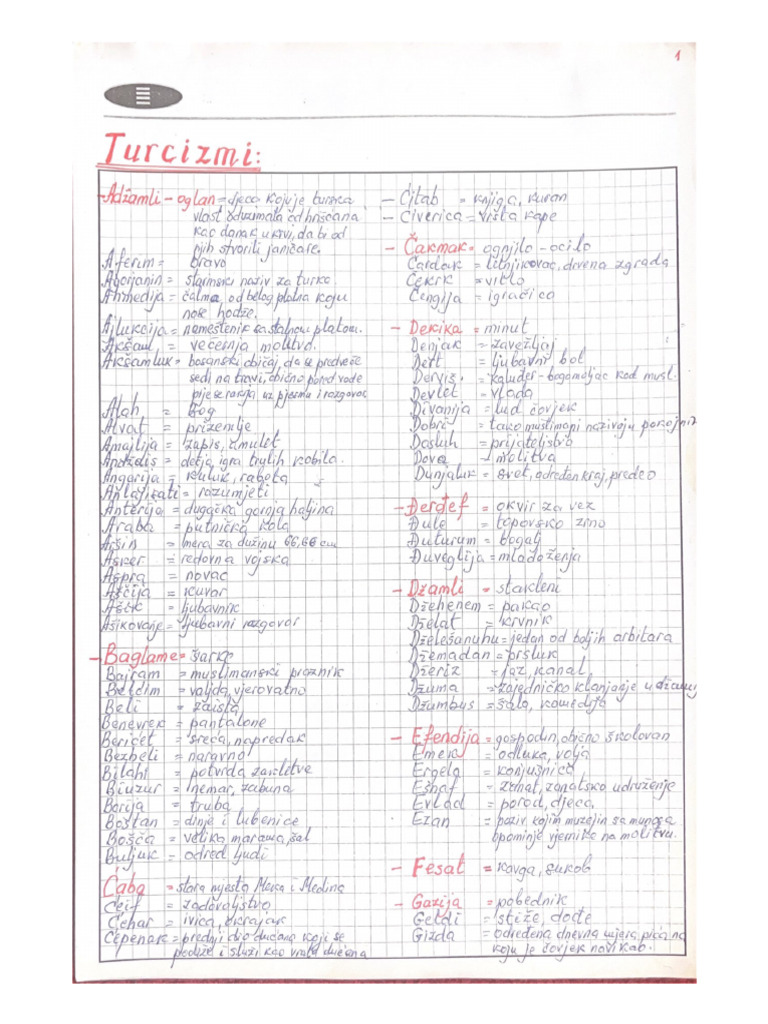 1
Turcizmi:
-Adžamli-oglan = djeca koju je turska
vlast oduzimala od hrišćana
kao danak u krvi, da bi od
njih stvorili janičare.
Aferim = bravo
Agarjanin = starinski naziv za turke.
Ahmedija = čalma, od belog platna koju
nose hodže.
Ajlukčija = nameštenik sa stalnom platom.
Akšam = večernja molitva.
Akšamluk = bosanski običaj, da se predveče
sedi na travi, obično pored vode
pije se rakija uz pjesmu i razgovor
Alah = bog
Alvat = prizemlje
Amajlija = zapis, amulet
= dečja igra trulih kobila.
Angarija = kuluk, rabota
= razumjeti
Anterija = dugačka gornja haljina
Araba = putnička kola
Aršin = mera za dužinu 66,66 cm
Asker = redovna vojska
Aspra = novac
Aščija = kuvar
Ašik = ljubavnik
Ašikovanje = ljubavni razgovor
-Baglame = šarke
Bajram = muslimanski praznik
Beldim = valjda, vjerovatno
Beli = zaista
Benevrek = pantalone
Berićet = sreća, napredak
Bezbeli = naravno
Bilahi = potvrda zakletve
Biuzur = nemar, zabuna
Borija = truba
Bostan = dinje i lubenice
Bošča = velika marama, šal
Buljuk = odred ljudi
Ćaba = stara mjesta Meka i Medina
Ćeif = zadovoljstvo
Ćenar = ivica, okrajak
Ćepenak = prednji dio dućana koji se
podiže i služi kao vrata dućana
- Ćitab = knjiga, kuran
- Ćiverica = vrsta kape
- Čakmak = ognjilo-ocilo
Čardak = litnjikovac, drvena zgrada
Čekrk = vitlo
Čengija = igračica
- Dekika = minut
Denjak = zavežljaj
Dert = ljubavni bol
Derviš = kaluđer-bogomoljac kod musl.
Devlet = vlada
Divanija = lud čovjek
Dobrić = tako muslimani nazivaju
Dosluh = prijateljstvo
Dova = molitva
Dunjaluk = svet, određen kraj, predeo
-Đerđef = okvir za vez
Đule = topovsko zrno
Đuturum = bogalj
Đuveglija = mladoženja
- Džamli = stakleni
Džehenem = pakao
Dželat = krvnik
Dželešanuhu = jedan od boljih arbitara
Džemadan = prsluk
Džeriz = jaz, kanal
Džuma = zajedničko klanjanje u džamiji
Džumbus = šala, komedija
- Efendija = gospodin, obično školovan
Emer = odluka, volja
Ergela = konjušnica
Esnaf = zanat, zanatsko udruženje
Evlad = porod, djeca,
Ezan = poziv kojim muzejin sa munara
opominje vjernike na molitvu.
- Fesat = kavga, sukob
- Gazija = pobednik
Geldi = stiže, dođe
Gizda = određena dnevna mjera pića na
koju je čovjek navikao.